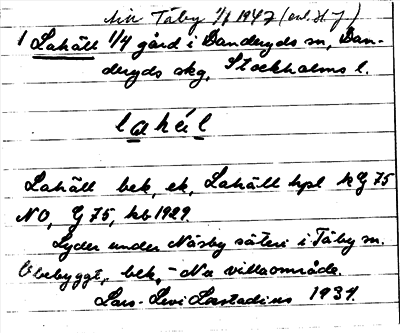 Täby 1/1 1947 (enl. H. J)
1 Lahäll 1/4 gård i Danderyds sn, Dan-
deryds skg, Stockholms l.
lahäl
Lahäll bek, ek, Lahäll hpl kG 75
NO, G 75, kb 1929.
Lyder under Näsby säteri i Täby sn.
Obebyggt, bek, - Nu villaområde.
Lars-Levi Læstadius 1934.